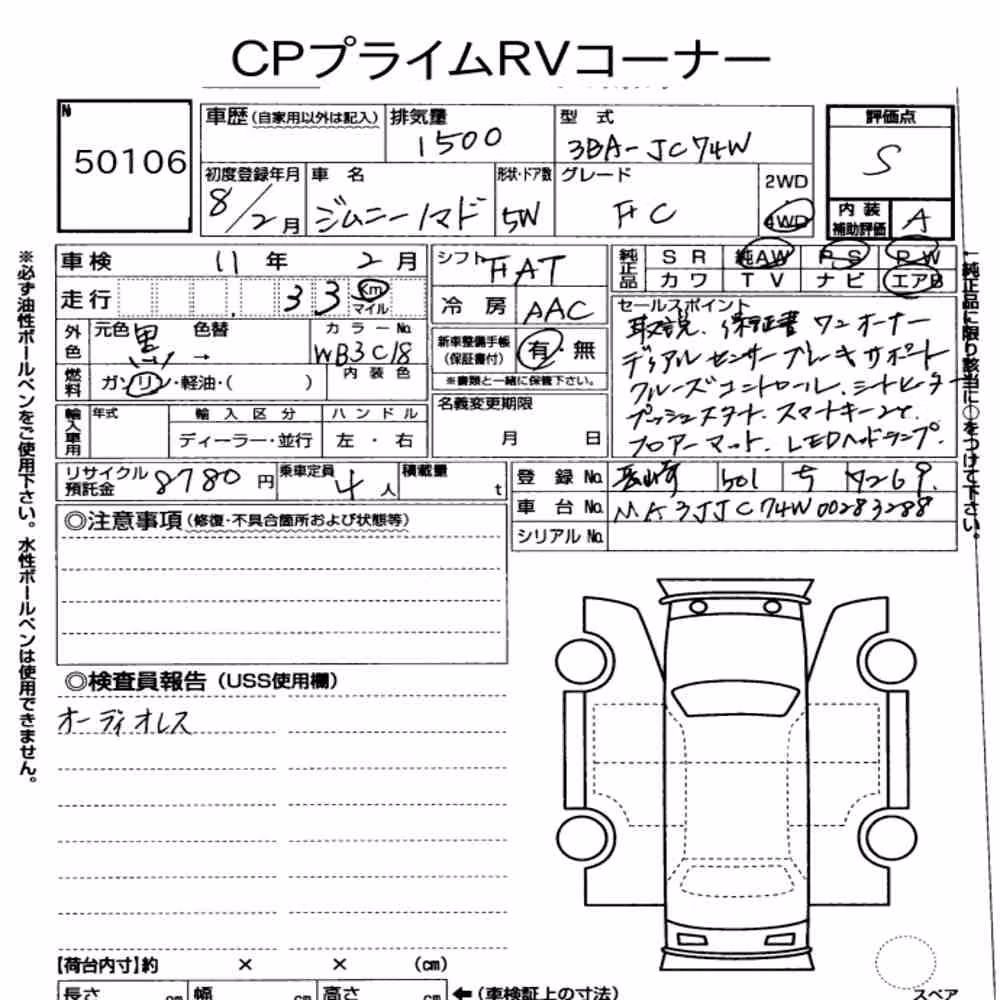 CPプライムRVコーナー
№ 50106
車歴(自家用以外は記入) 排気量 1500 型式 3BA-JC74W 評価点 S
初度登録年月 8/2月 車名 ジムニーノマド 形状・ドア数 5W グレード FC 2WD 4WD 内装補助評価 A
車検 11年 2月 シフト FAT 純正品 SR 純AW PS PW
走行 33 km マイル 冷房 AAC カワ TV ナビ エアB
外色 元色 黒 色替 → カラーNo. WB3C18 内装色
新車整備手帳(保証書付) 有・無
※書類と一緒に保管下さい。
燃料 ガソリン・軽油・( )
セールスポイント
取説、保証書 ワンオーナー
デュアルセンサーブレーキサポート
クルーズコントロール、シートヒーター
プッシュスタート、スマートキー2ケ、
フロアーマット、LEDヘッドランプ.
名義変更期限 月 日
輸入車用 年式 輸入区分 ディーラー・並行 ハンドル 左・右
リサイクル預託金 8780円 乗車定員 4人 積載量 t
登録No. 長崎 501 ち 7269
車台No. MA3JJC74W00283288
シリアルNo.
◎注意事項(修復・不具合箇所および状態等)
◎検査員報告(USS使用欄)
オーディオレス
【荷台内寸】約 × × (cm)
長さ cm 幅 cm 高さ cm ←(車検証上の寸法)
スペア
※必ず油性ボールペンをご使用下さい。水性ボールペンは使用できません。
純正品に限り該当に○をつけて下さい。